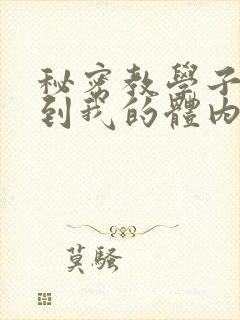 秘密教學子
到我的體內
莫騷